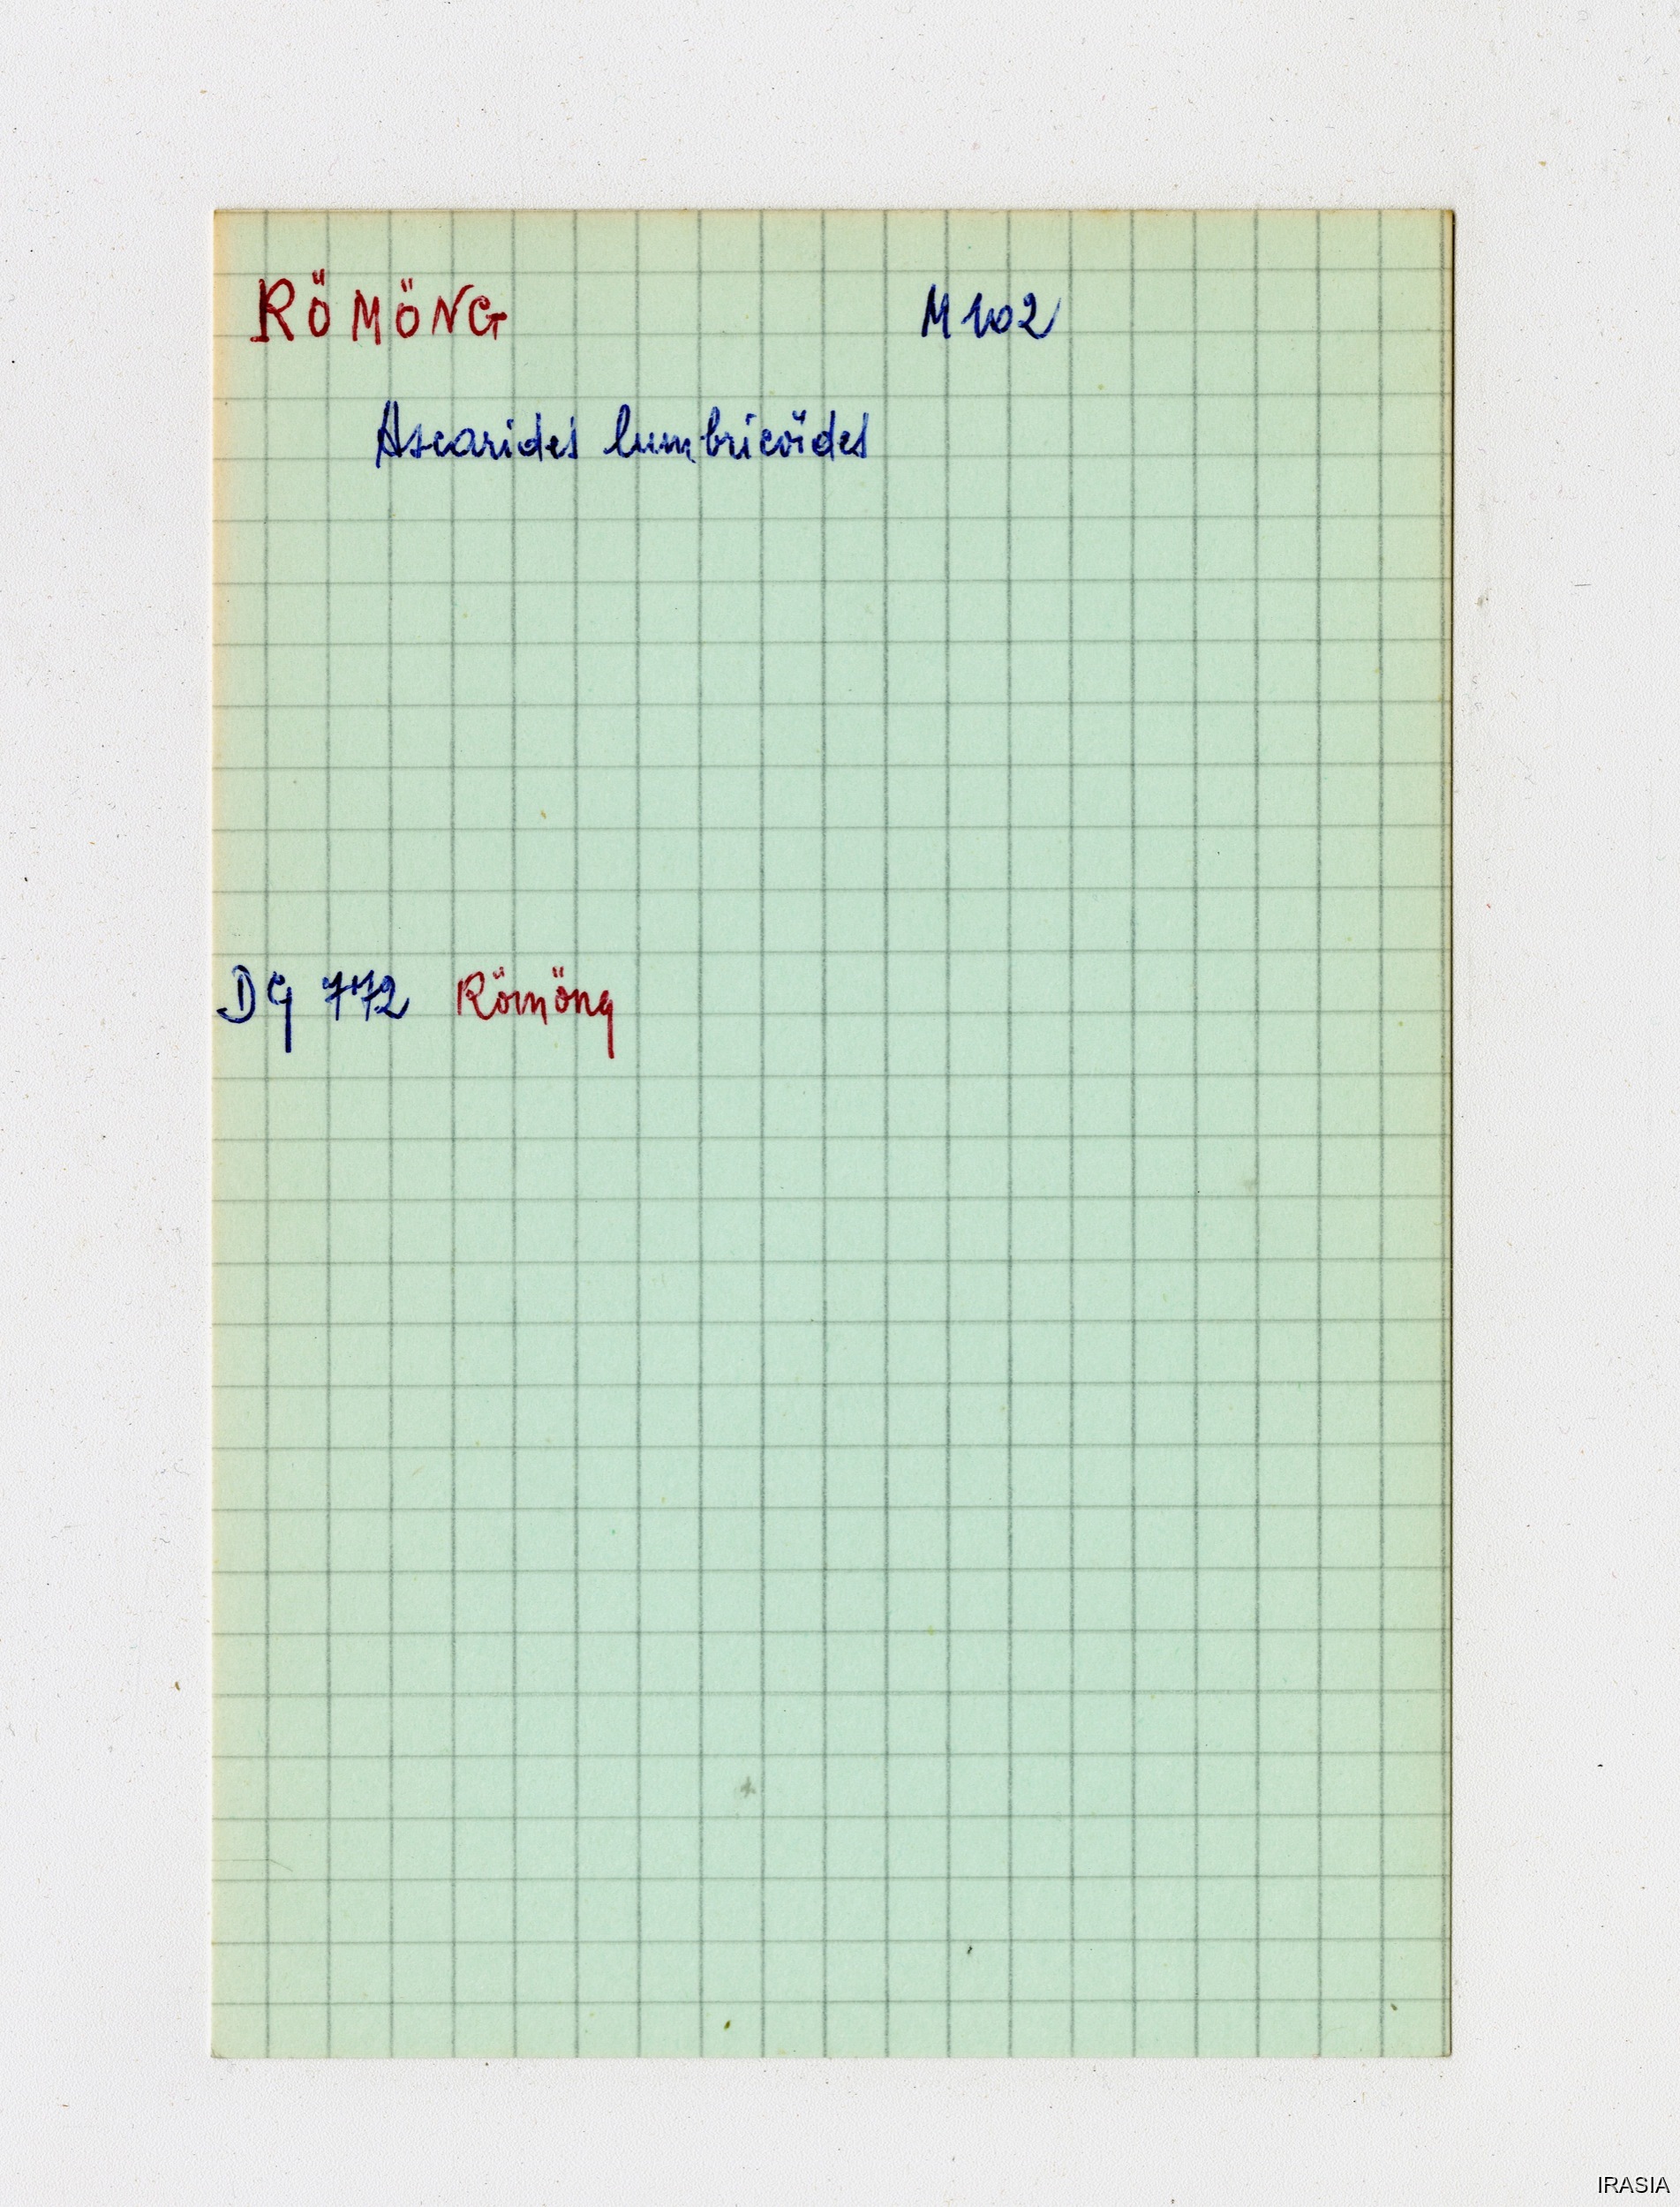 RÖMÖNG M 102
Ascarides lumbricoïdes
DG 772 Römöng
IRASIA